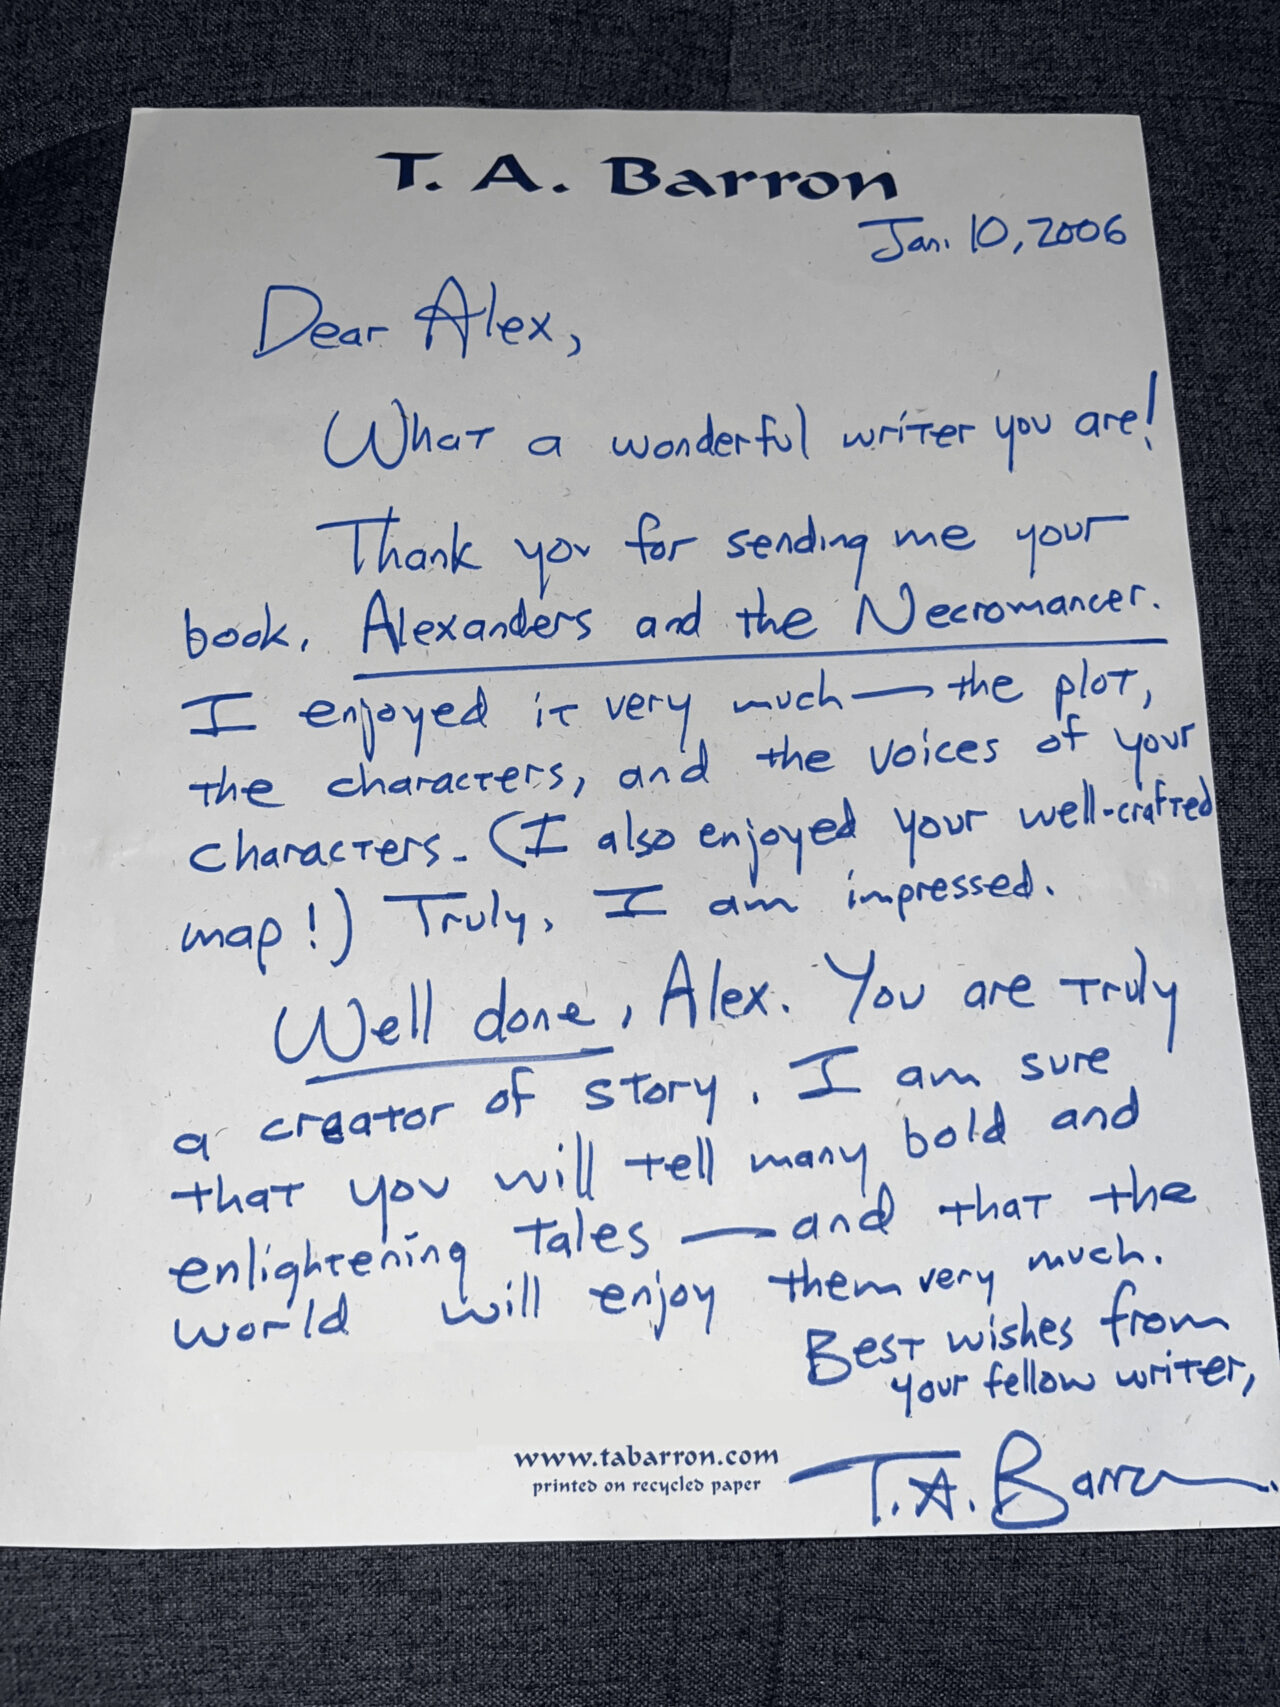 T. A. Barron
Jan. 10, 2006
Dear Alex,
What a wonderful writer you are!
Thank you for sending me your
book, Alexanders and the Necromancer.
I enjoyed it very much — the plot,
the characters, and the voices of your
characters. (I also enjoyed your well-crafted
map!) Truly, I am impressed.
Well done, Alex. You are truly
a creator of story. I am sure
that you will tell many bold and
enlightening tales — and that the
world will enjoy them very much.
Best wishes from
your fellow writer,
T. A. Barron
www.tabarron.com
printed on recycled paper